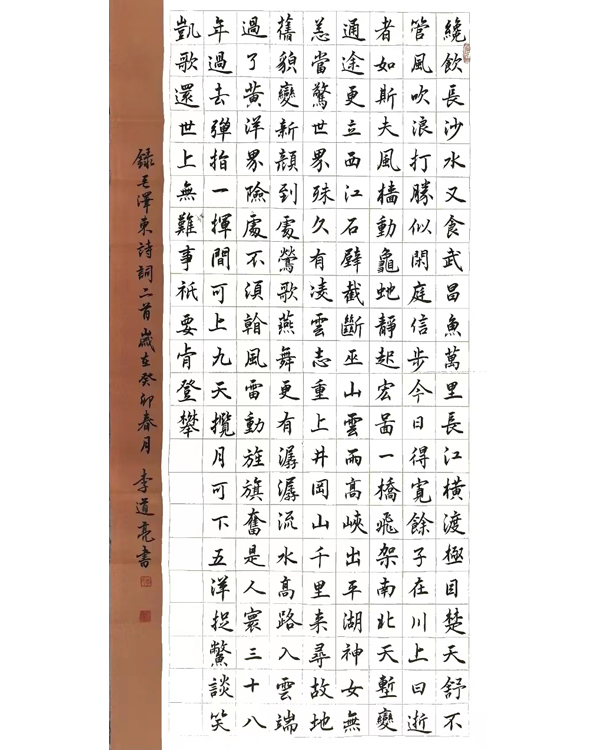 纔飲長沙水又食武昌魚萬里長江橫渡極目楚天舒不
管風吹浪打勝似閑庭信步今日得寬餘子在川上曰逝
者如斯夫風檣動龜蛇靜起宏圖一橋飛架南北天塹變
通途更立西江石壁截斷巫山雲雨高峽出平湖神女無
恙當驚世界殊久有凌雲志重上井岡山千里來尋故地
舊貌變新顏到處鶯歌燕舞更有潺潺流水高路入雲端
過了黃洋界險處不須看風雷動旌旗奮是人寰三十八
年過去彈指一揮間可上九天攬月可下五洋捉鱉談笑
凱歌還世上無難事祇要肯登攀
錄毛澤東詩詞二首歲在癸卯春月 李道亮書